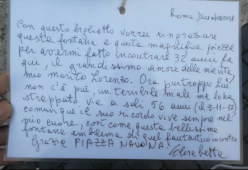 Con questo biglietto vorrei ringraziare
questa fontana e questa magnifica piazza
per avermi fatto incontrare 32 anni fa
qui, il grandissimo amore della mia vita
mio marito Lorenzo. Ora purtroppo lui
non c'è più, un terribile male me lo ha
strappato via a soli 56 anni
comunque il suo ricordo vive sempre nel
mio cuore, così come questa bellissima
fontana emblema di quel fantastico incontro
Grazie PIAZZA NAVONA!
Elisabetta